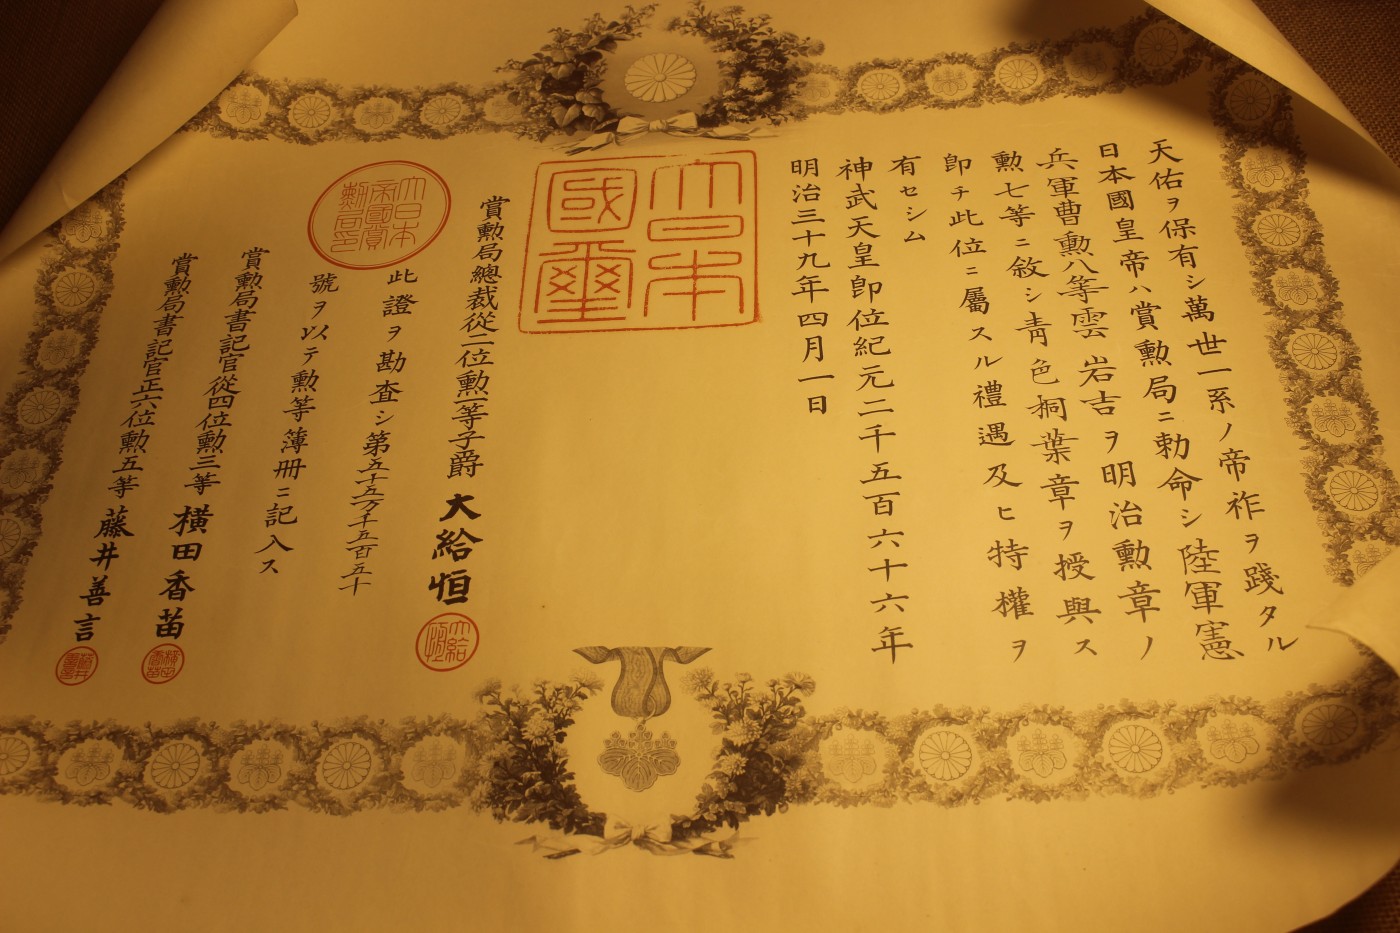 天佑ヲ保有シ萬世一系ノ帝祚ヲ踐タル
日本國皇帝ハ賞勲局ニ勅命シ陸軍憲
兵軍曹勲八等雲岩吉ヲ明治勲章ノ
勲七等ニ敘シ青色桐葉章ヲ授與ス
卽チ此位ニ屬スル禮遇及ヒ特權ヲ
有セシム
神武天皇卽位紀元二千五百六十六年
明治三十九年四月一日
大日本
國璽
賞勲局總裁從二位勲一等子爵大給恒
大給恒
大日本帝國賞勲局印
此證ヲ勘査シ第五十五万千五百五十
號ヲ以テ勲等簿冊ニ記入ス
賞勲局書記官從四位勲三等横田香苗
横田香苗
賞勲局書記官正六位勲五等藤井善言
藤井善言